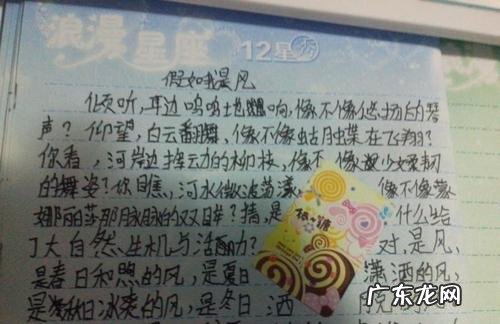 浪漫星座 12星秀
假如我是风
倾听,耳边呜呜地飘响,像不像悠扬的琴
声?仰望,白云翻舞、像不像蛄蝴蝶在飞翔?
你看,河岸边挥动的柳枝、像不 像少女柔韧
的舞姿?你瞧,河水微波荡漾, 像不像蒙
娜丽莎那脉脉的双眸?猜,是 什么给
了大自然、生机与活力? 对,是风、
是春日和煦的风,是夏日 潇洒的风,
是秋日冰爽的风,是冬日 洒 的风
棉花糖
广东龙网